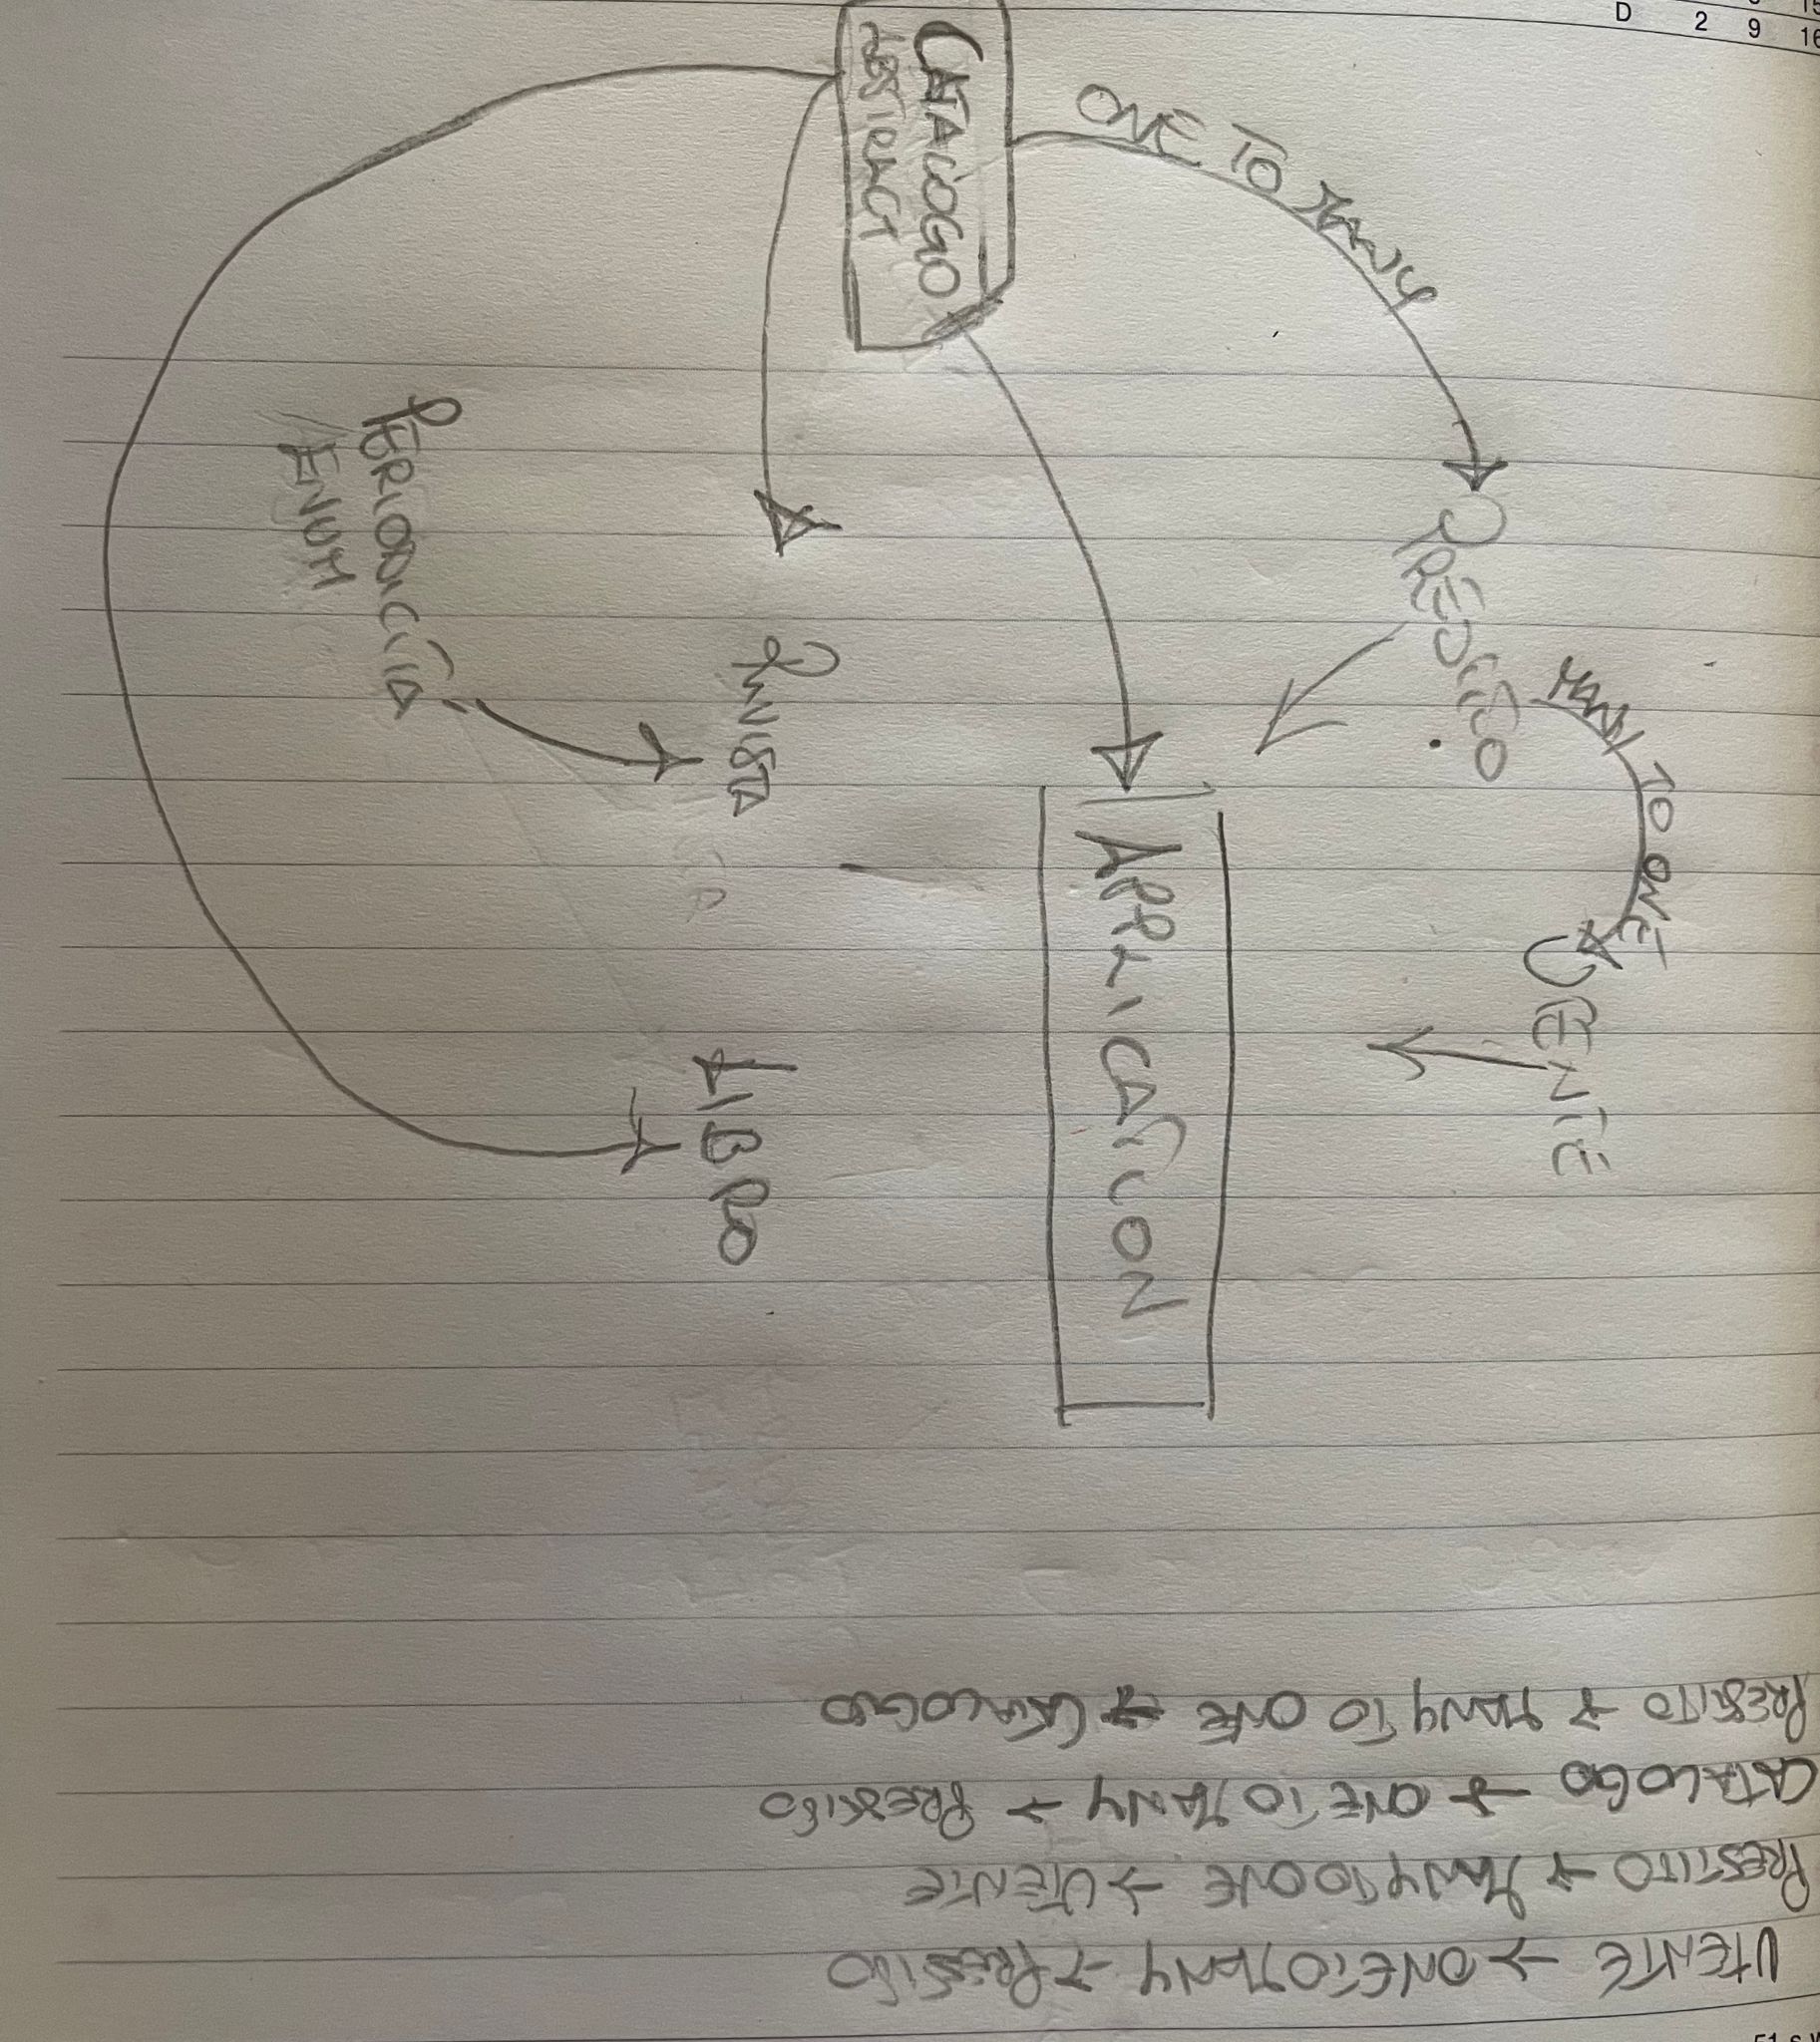 D 2 9 16
CATALOGO
ABSTRACT
ONE TO MANY
PRESTITO
MANY TO ONE
UTENTE
APPLICATION
RIVISTA
PERIODICITÀ
ENUM
LIBRO
UTENTE → ONE TO MANY → PRESTITO
PRESTITO → MANY TO ONE → UTENTE
CATALOGO → ONE TO MANY → PRESTITO
PRESTITO → MANY TO ONE → CATALOGO